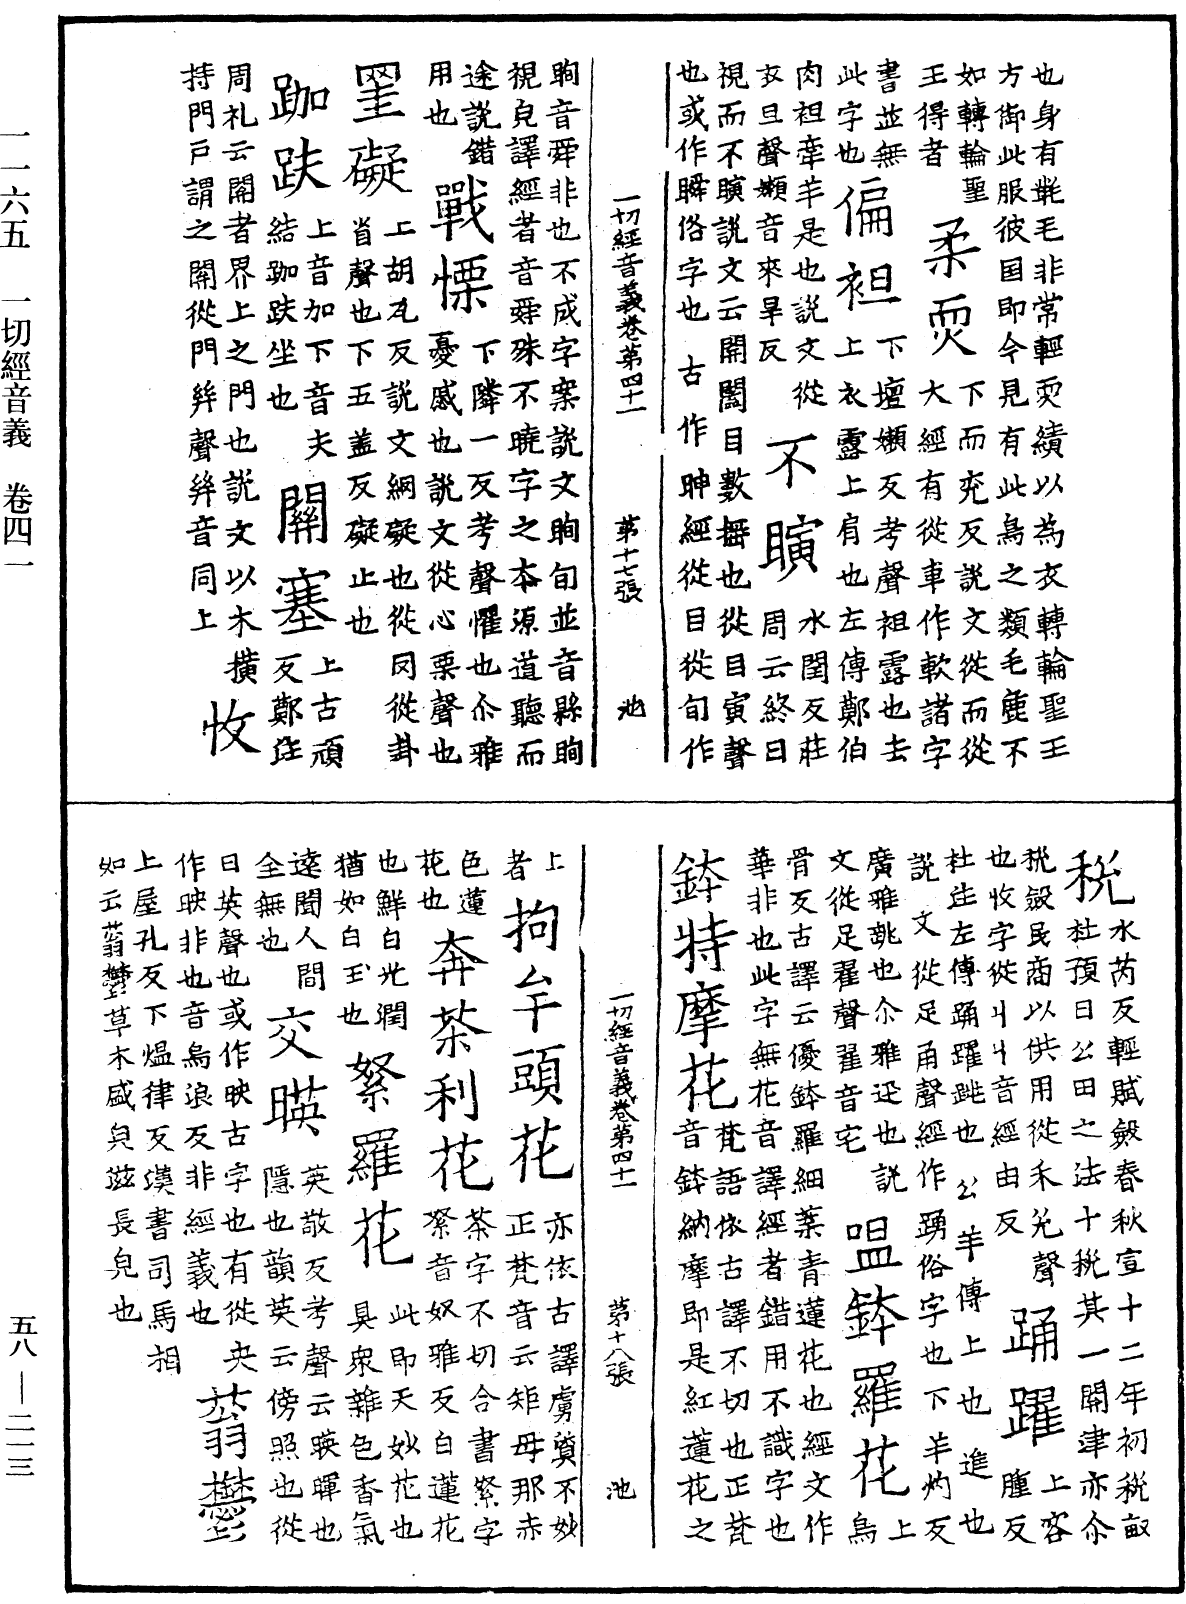 也身有毳毛非常輕耎績以為衣轉輪聖王
方御此服彼国即今見有此鳥之類毛麁不
如轉輪聖
王得者
柔耎
下而兖反說文從而從
大經有從車作軟諸字
書並無
此字也
偏袒
下壇嬾反考聲袒露也去
上衣露上肩也左傳鄭伯
肉袒牽羊是也說文從
衣旦聲嬾音來旱反
不瞚
水閏反莊
周云終日
視而不瞚說文云開闔目數搖也從目寅聲
也或作瞬俗字也 古作䀢經從目從旬作
一切經音義卷第四十一 第十七張 池
眴音舜非也不成字案說文眴旬並音縣眴
視皃譯經者音舜殊不曉字之本源道聽而
途說錯
用也
戰慄
下隣一反考聲懼也尒雅
憂慼也說文從心栗聲也
罣礙
上胡瓦反說文網礙也從罔從卦
省聲也下五盖反礙止也
跏趺
上音加下音夫
結跏趺坐也
關塞
上古頑
反鄭注
周礼云關者界上之門也說文以木橫
持門戶謂之關從門𢇇聲𢇇音同上
收
稅
水芮反輕賦斂春秋宣十二年初稅畝
杜預曰公田之法十稅其一關津亦尒
稅斂民商以供用從禾兊聲
也收字從丩丩音經由反
踊躍
上容
腫反
杜注左傳踊躍跳也公羊傳上也進也
說文從足甬聲經作踴俗字也下羊灼反
廣雅跳也尒雅迅也說
文從足翟聲翟音宅
嗢鉢羅花
上
烏
骨反古譯云優鉢羅細葉青蓮花也經文作
華非也此字無花音譯經者錯用不識字也
鉢特摩花
梵語依古譯不切也正梵
音鉢納摩即是紅蓮花之
一切經音義卷第四十一 第十八張 池
上
者
拘牟頭花
亦依古譯虜質不妙
正梵音云矩母那赤
色蓮
花也
奔荼利花
荼字不切合書拏字
拏音奴雅反白蓮花
也鮮白光潤
猶如白玉也
拏羅花
此即天妙花也
具眾雜色香氣
遠聞人間
全無也
交暎
英敬反考聲云暎暉也
隱也韻英云傍照也從
日英聲也或作映古字也有從央
作映非也音烏浪反非經義也
蓊鬱
上屋孔反下熅律反漢書司馬相
如云蓊鬱草木盛皃滋長皃也
一一六五 一切經音義 卷四一
五八—二一三